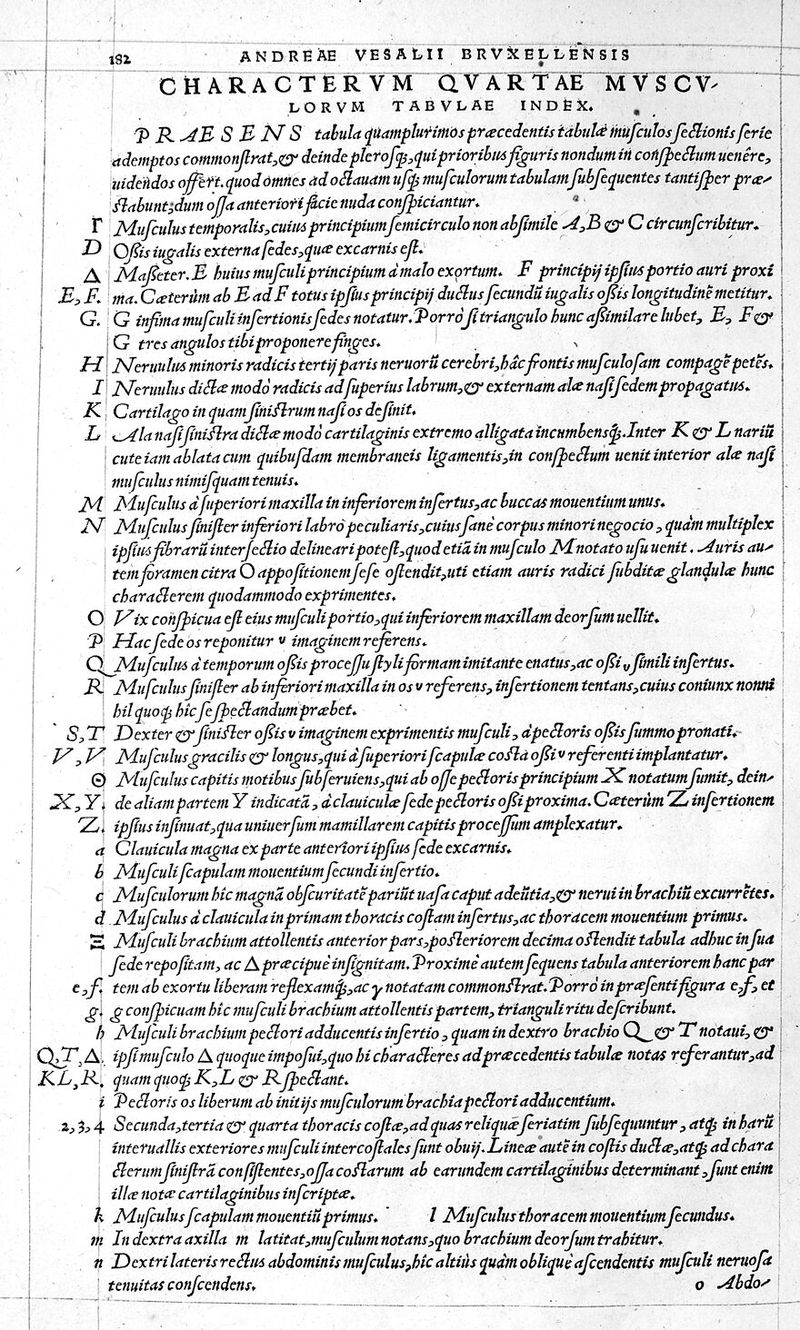 182 ANDREAE VESALII BRVXELLENSIS
CHARACTERVM QVARTAE MVSCV-
LORVM TABVLAE INDEX.
PRAESENS tabula quamplurimos præcedentis tabulæ musculos sectionis serie
ademptos commonstrat, & deinde plerosq;, qui prioribus figuris nondum in conspectum uenêre,
uidendos offert. quod omnes ad octauam usq; musculorum tabulam subsequentes tantisper præ-
stabunt; dum ossa anteriori facie nuda conspiciantur.
Γ Musculus temporalis, cuius principium semicirculo non absimile A, B & C circunscribitur.
D Oßis iugalis externa sedes, quæ excarnis est.
Δ Maßeter. E huius musculi principium à malo exortum. F principij ipsius portio auri proxi
E, F. ma. Cæterùm ab E ad F totus ipsius principij ductus secundũ iugalis oßis longitudinẽ metitur.
G. G infima musculi insertionis sedes notatur. Porrò si triangulo hunc aßimilare lubet, E, F &
G tres angulos tibi proponere finges.
H Neruulus minoris radicis tertij paris neruorũ cerebri, hâc frontis musculosam compagẽ petẽs.
I Neruulus dictæ modò radicis ad superius labrum, & externam alæ nasi sedem propagatus.
K Cartilago in quam sinistrum nasi os desinit.
L Ala nasi sinistra dictæ modò cartilaginis extremo alligata incumbensq;. Inter K & L nariũ
cute iam ablata cum quibusdam membraneis ligamentis, in conspectum uenit interior alæ nasi
musculus nimisquam tenuis.
M Musculus à superiori maxilla in inferiorem insertus, ac buccas mouentium unus.
N Musculus sinister inferiori labro peculiaris, cuius sanè corpus minori negocio, quàm multiplex
ipsius fibrarũ intersectio delineari potest, quod etiã in musculo M notato usu uenit. Auris au-
tem foramen citra O appositionem sese ostendit, uti etiam auris radici subditæ glandulæ hunc
characterem quodammodo exprimentes.
O Vix conspicua est eius musculi portio, qui inferiorem maxillam deorsum uellit.
P Hac sede os reponitur υ imaginem referens.
Q Musculus à temporum oßis processu styli formam imitante enatus, ac oßi υ simili insertus.
R Musculus sinister ab inferiori maxilla in os υ referens, insertionem tentans, cuius coniunx nonni
hil quoq; hic se spectandum præbet.
S, T Dexter & sinister oßis υ imaginem exprimentis musculi, à pectoris oßis summo pronati.
V, V Musculus gracilis & longus, qui à superiori scapulæ costa oßi υ referenti implantatur.
Θ Musculus capitis motibus subseruiens, qui ab osse pectoris principium X notatum sumit, dein-
X, Y. de aliam partem Y indicatã, à clauiculæ sede pectoris oßi proxima. Cæterùm Z insertionem
Z. ipsius insinuat, qua uniuersum mamillarem capitis processum amplexatur.
a Clauicula magna ex parte anteriori ipsius sede excarnis.
b Musculi scapulam mouentium secundi insertio.
c Musculorum hic magnã obscuritatẽ pariũt uasa caput adeũtia, & nerui in brachiũ excurrẽtes.
d Musculus à clauicula in primam thoracis costam insertus, ac thoracem mouentium primus.
Ξ Musculi brachium attollentis anterior pars, posteriorem decima ostendit tabula adhuc in sua
sede repositam, ac Δ præcipuè insignitam. Proximè autem sequens tabula anteriorem hanc par
e, f. tem ab exortu liberam reflexamq;, ac γ notatam commonstrat. Porrò in præsenti figura e, f, et
g. g conspicuam hic musculi brachium attollentis partem, trianguli ritu describunt.
h Musculi brachium pectori adducentis insertio, quam in dextro brachio Q & T notaui, &
Q, T, Δ. ipsi musculo Δ quoque imposui, quo hi characteres ad præcedentis tabulæ notas referantur, ad
KL, R. quam quoq; K, L & R spectant.
i Pectoris os liberum ab initijs musculorum brachia pectori adducentium.
2, 3, 4 Secunda, tertia & quarta thoracis costæ, ad quas reliquæ seriatim subsequuntur, atq; in harũ
interuallis exteriores musculi intercostales sunt obuij. Lineæ autẽ in costis ductæ, atq; ad chara
cterum sinistrã consistentes, ossa costarum ab earundem cartilaginibus determinant, sunt enim
illæ notæ cartilaginibus inscriptæ.
k Musculus scapulam mouentiũ primus. l Musculus thoracem mouentium secundus.
m In dextra axilla m latitat, musculum notans, quo brachium deorsum trahitur.
n Dextri lateris rectus abdominis musculus, hîc altiùs quàm obliquè ascendentis musculi neruosa
tenuitas conscendens. o Abdo-